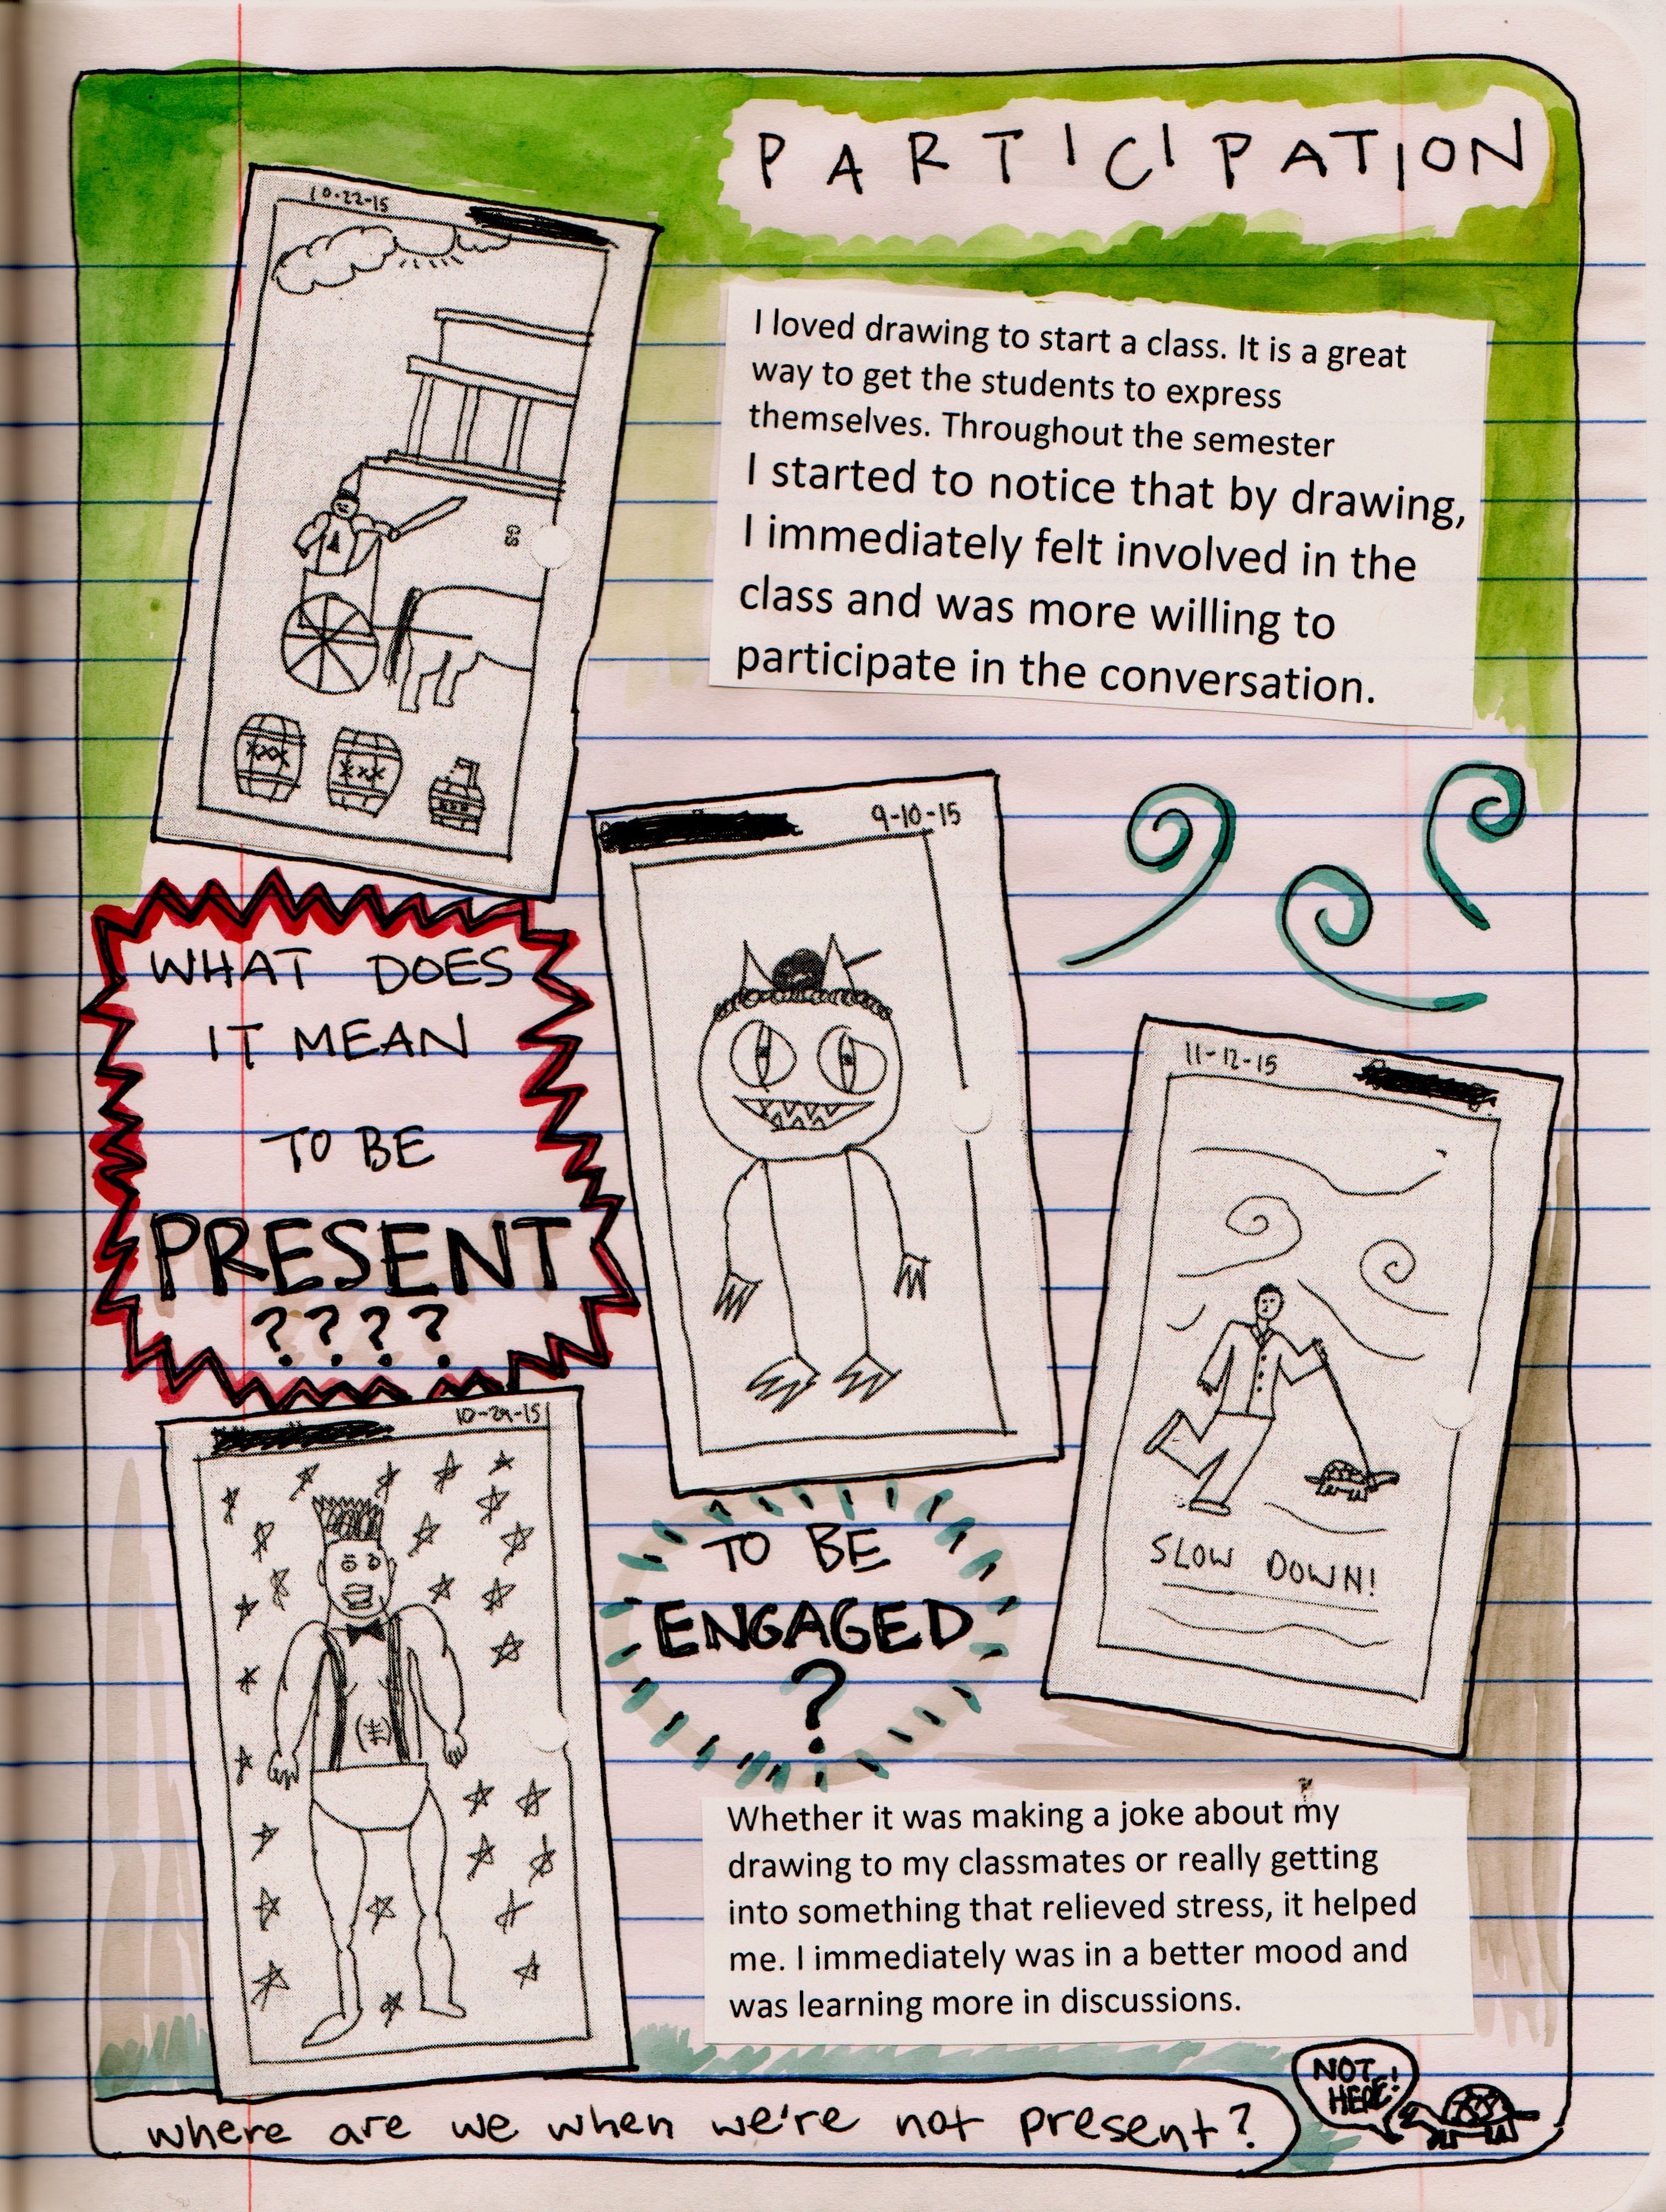 PARTICIPATION
10-22-15
I loved drawing to start a class. It is a great
way to get the students to express
themselves. Throughout the semester
I started to notice that by drawing,
I immediately felt involved in the
class and was more willing to
participate in the conversation.
XXX
XXX
9-10-15
WHAT DOES
IT MEAN
TO BE
PRESENT
????
11-12-15
SLOW DOWN!
10-29-15
TO BE
ENGAGED
?
Whether it was making a joke about my
drawing to my classmates or really getting
into something that relieved stress, it helped
me. I immediately was in a better mood and
was learning more in discussions.
where are we when we're not present?
NOT
HERE!